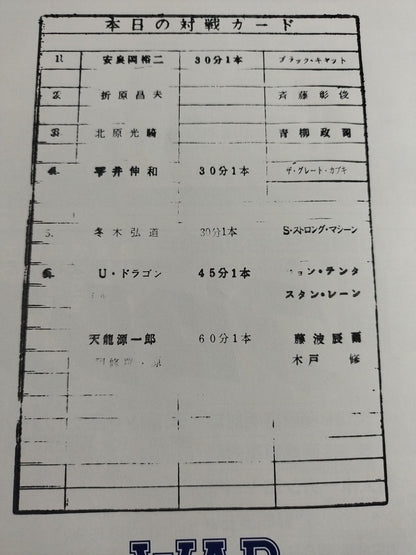 本日の対戦カード
1 安良岡裕二 30分1本 ブラック・キャット
2 折原昌夫 斉藤彰俊
3 北原光騎 青柳政司
4 平井伸和 30分1本 ザ・グレート・カブキ
5. 冬木弘道 30分1本 S・ストロング・マシーン
6 U・ドラゴン 45分1本 ジョン・テンタ
スタン・レーン
天龍源一郎 60分1本 藤波辰爾
木戸 修
WAR